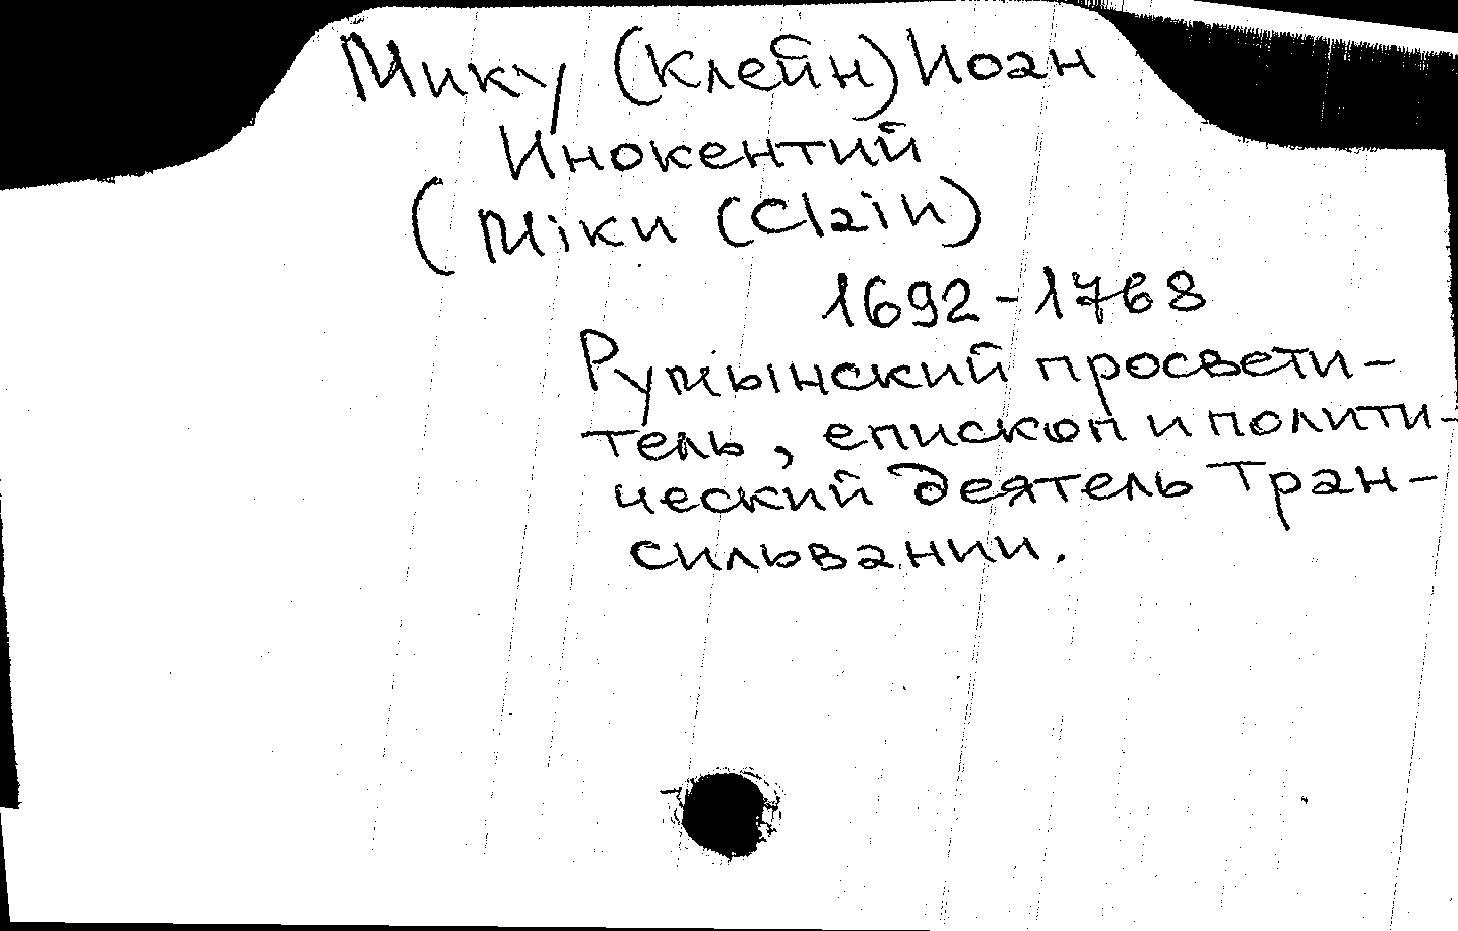 Мику (Клейн) Иоан
Инокентий
(Miku (Clain)
1692-1768
Румынский просвети-
тель, епископ и полити-
ческий деятель Тран-
сильвании.